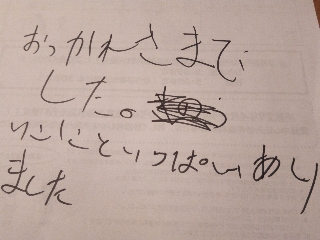 おつかれさまで
した。
しごといっぱいあり
ました